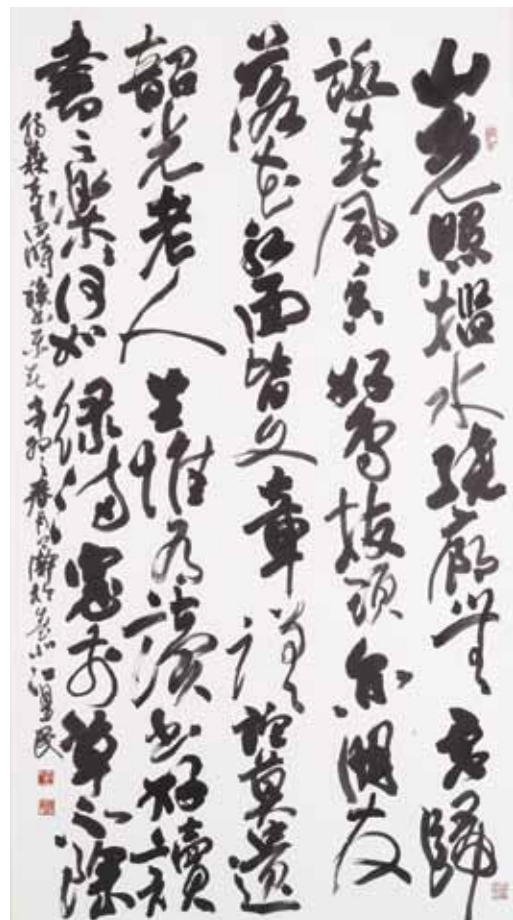 山光照檻水繞廊舞雩歸
詠春風香好鳥枝頭亦朋友
落花水面皆文章蹉跎莫遣
韶光老人生惟有讀書好讀
書之樂〻何如綠滿窗前草不除
辛卯之春月